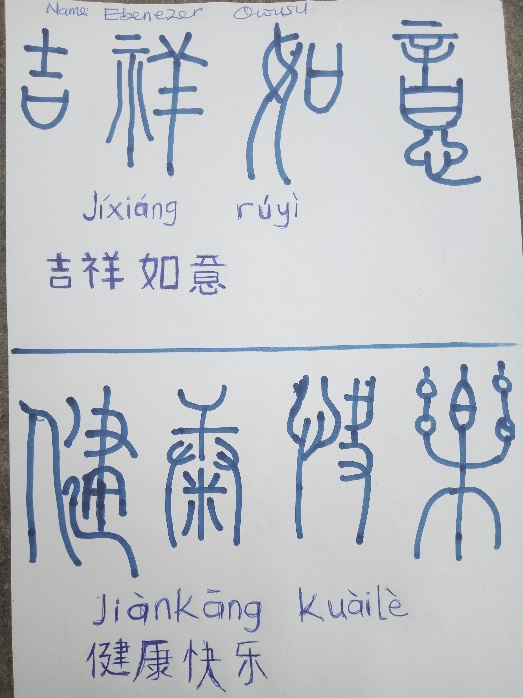 Name: Ebenezer Owusu
吉祥如意
Jíxiáng rúyì
吉祥如意
健康快樂
Jiànkāng Kuàilè
健康快乐